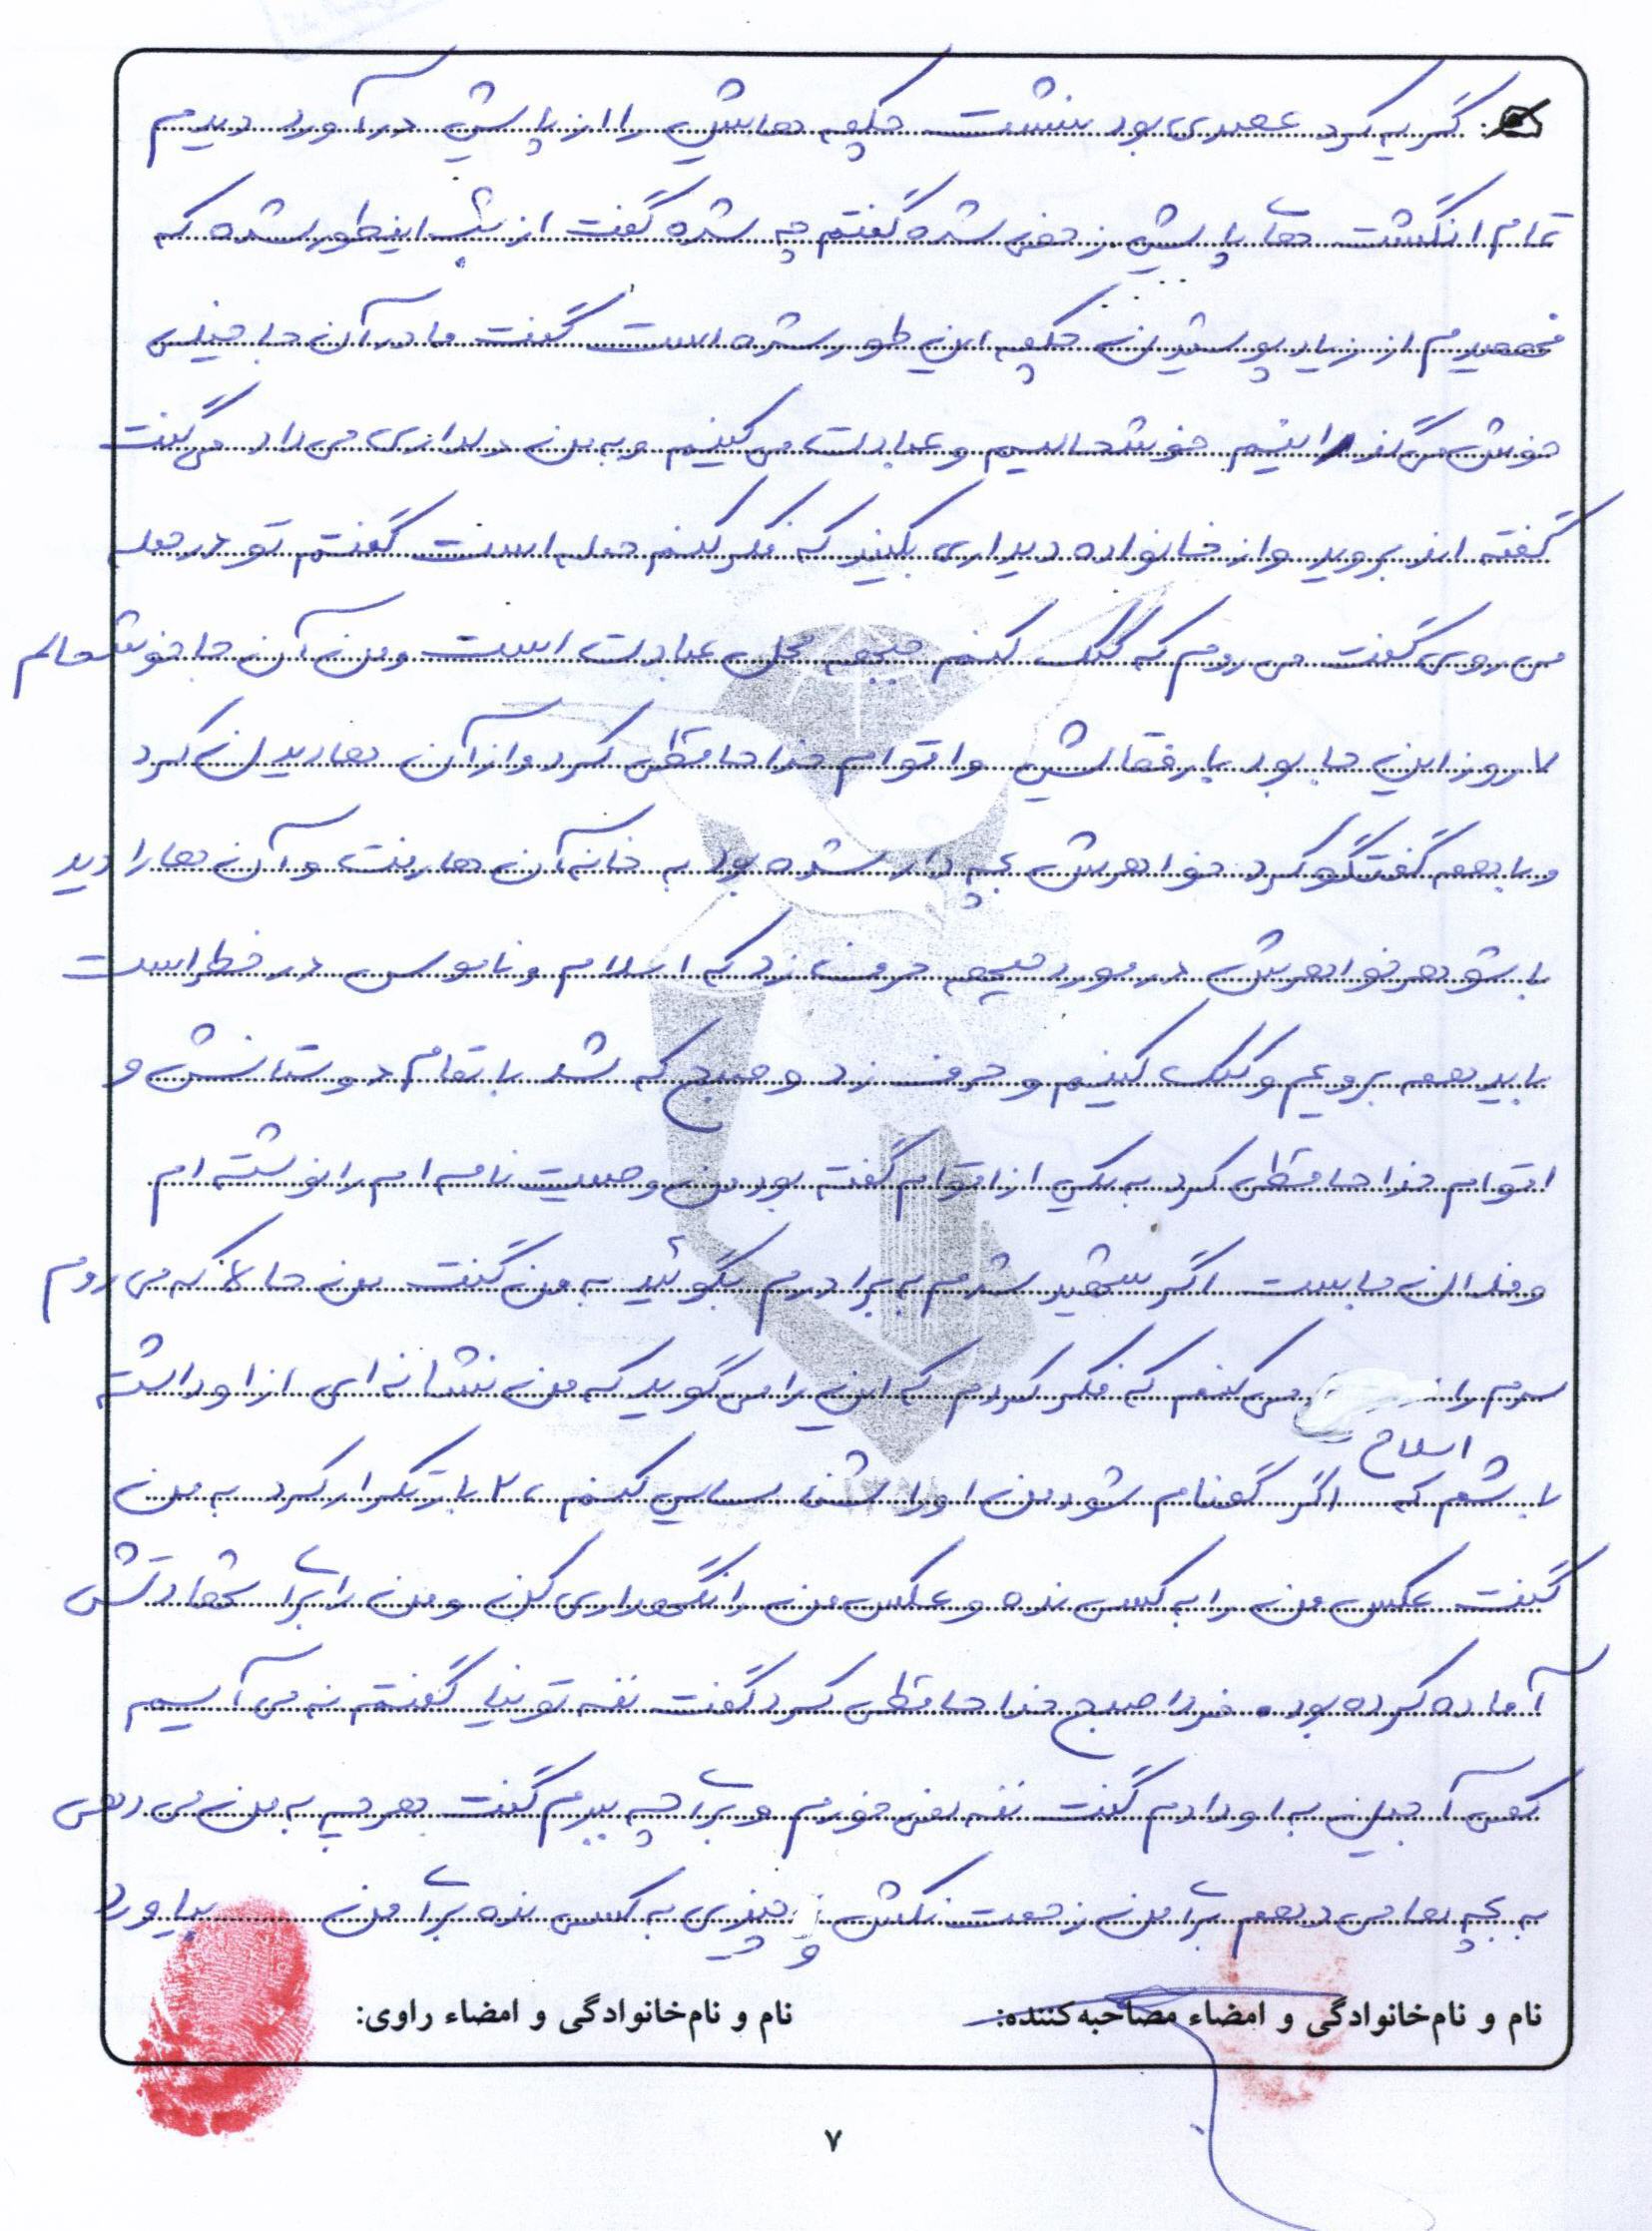 گریه کرد عیدی بود بنشت چکمه هایش را از پایش در آورد دیدم
تمام انگشت های پایش زخمی شده گفتم چه شده گفت از شب اینطور شده که
فهمیدم از زیاد پوشیدن چکمه این طور شده است گفت ما در آن جا خیلی
خوش می گذرانیم خوشحالیم و عبادت می کنیم و به من دلداری می داد می گفت
گفته اند بروید و از خانواده دیداری بکنید که فکر کنم حمله است گفتم تو در حمله
می روی گفت می روم که کمک کنم جبهه محل عبادت است و من آن جا خوشحالم
۷ روز این جا بود با رفقایش و اقوام خدا حافظی کرد و از آن ها دیدن کرد
و با همه گفتگو کرد خواهرش بچه دار شده بود به خانه آن ها رفت و آن ها را دید
با شوهر خواهرش در مورد جبهه حرف زد که اسلام و ناموس در خطر است
باید همه برویم و کمک کنیم و حرف زد و صبح که شد با تمام دوستانش و
اقوام خدا حافظی کرد به یکی از اقوام گفته بود من وصیت نامه ام را نوشته ام
و فلان جاست اگر شهید شدم به برادرم بگوئید به من گفت من حالا که می روم
سرم را می کنم که فکر کردم که این را می گوید که من نشانه ای از او داشته
اسلاح
باشم که اگر گمنام شود من او را شناسایی کنم ، ۲ بار تکرار کرد به من
گفت عکس من را به کسی نده و عکس من را نگهداری کن و من را برای شهادتش
آماده کرده بود. فردا صبح خدا حافظی کرد گفت ننه تو نیا گفتم نه می آییم
کمی آجیل به او دادم گفت ننه نمی خورم و برای چه ببرم گفت هر چه به من می دهی
به بچه ها می دهم برای من زحمت نکش و چیزی به کسی نده برای من بیاورد
نام و نام‌خانوادگی و امضاء مصاحبه‌کننده:
نام و نام‌خانوادگی و امضاء راوی:
۷